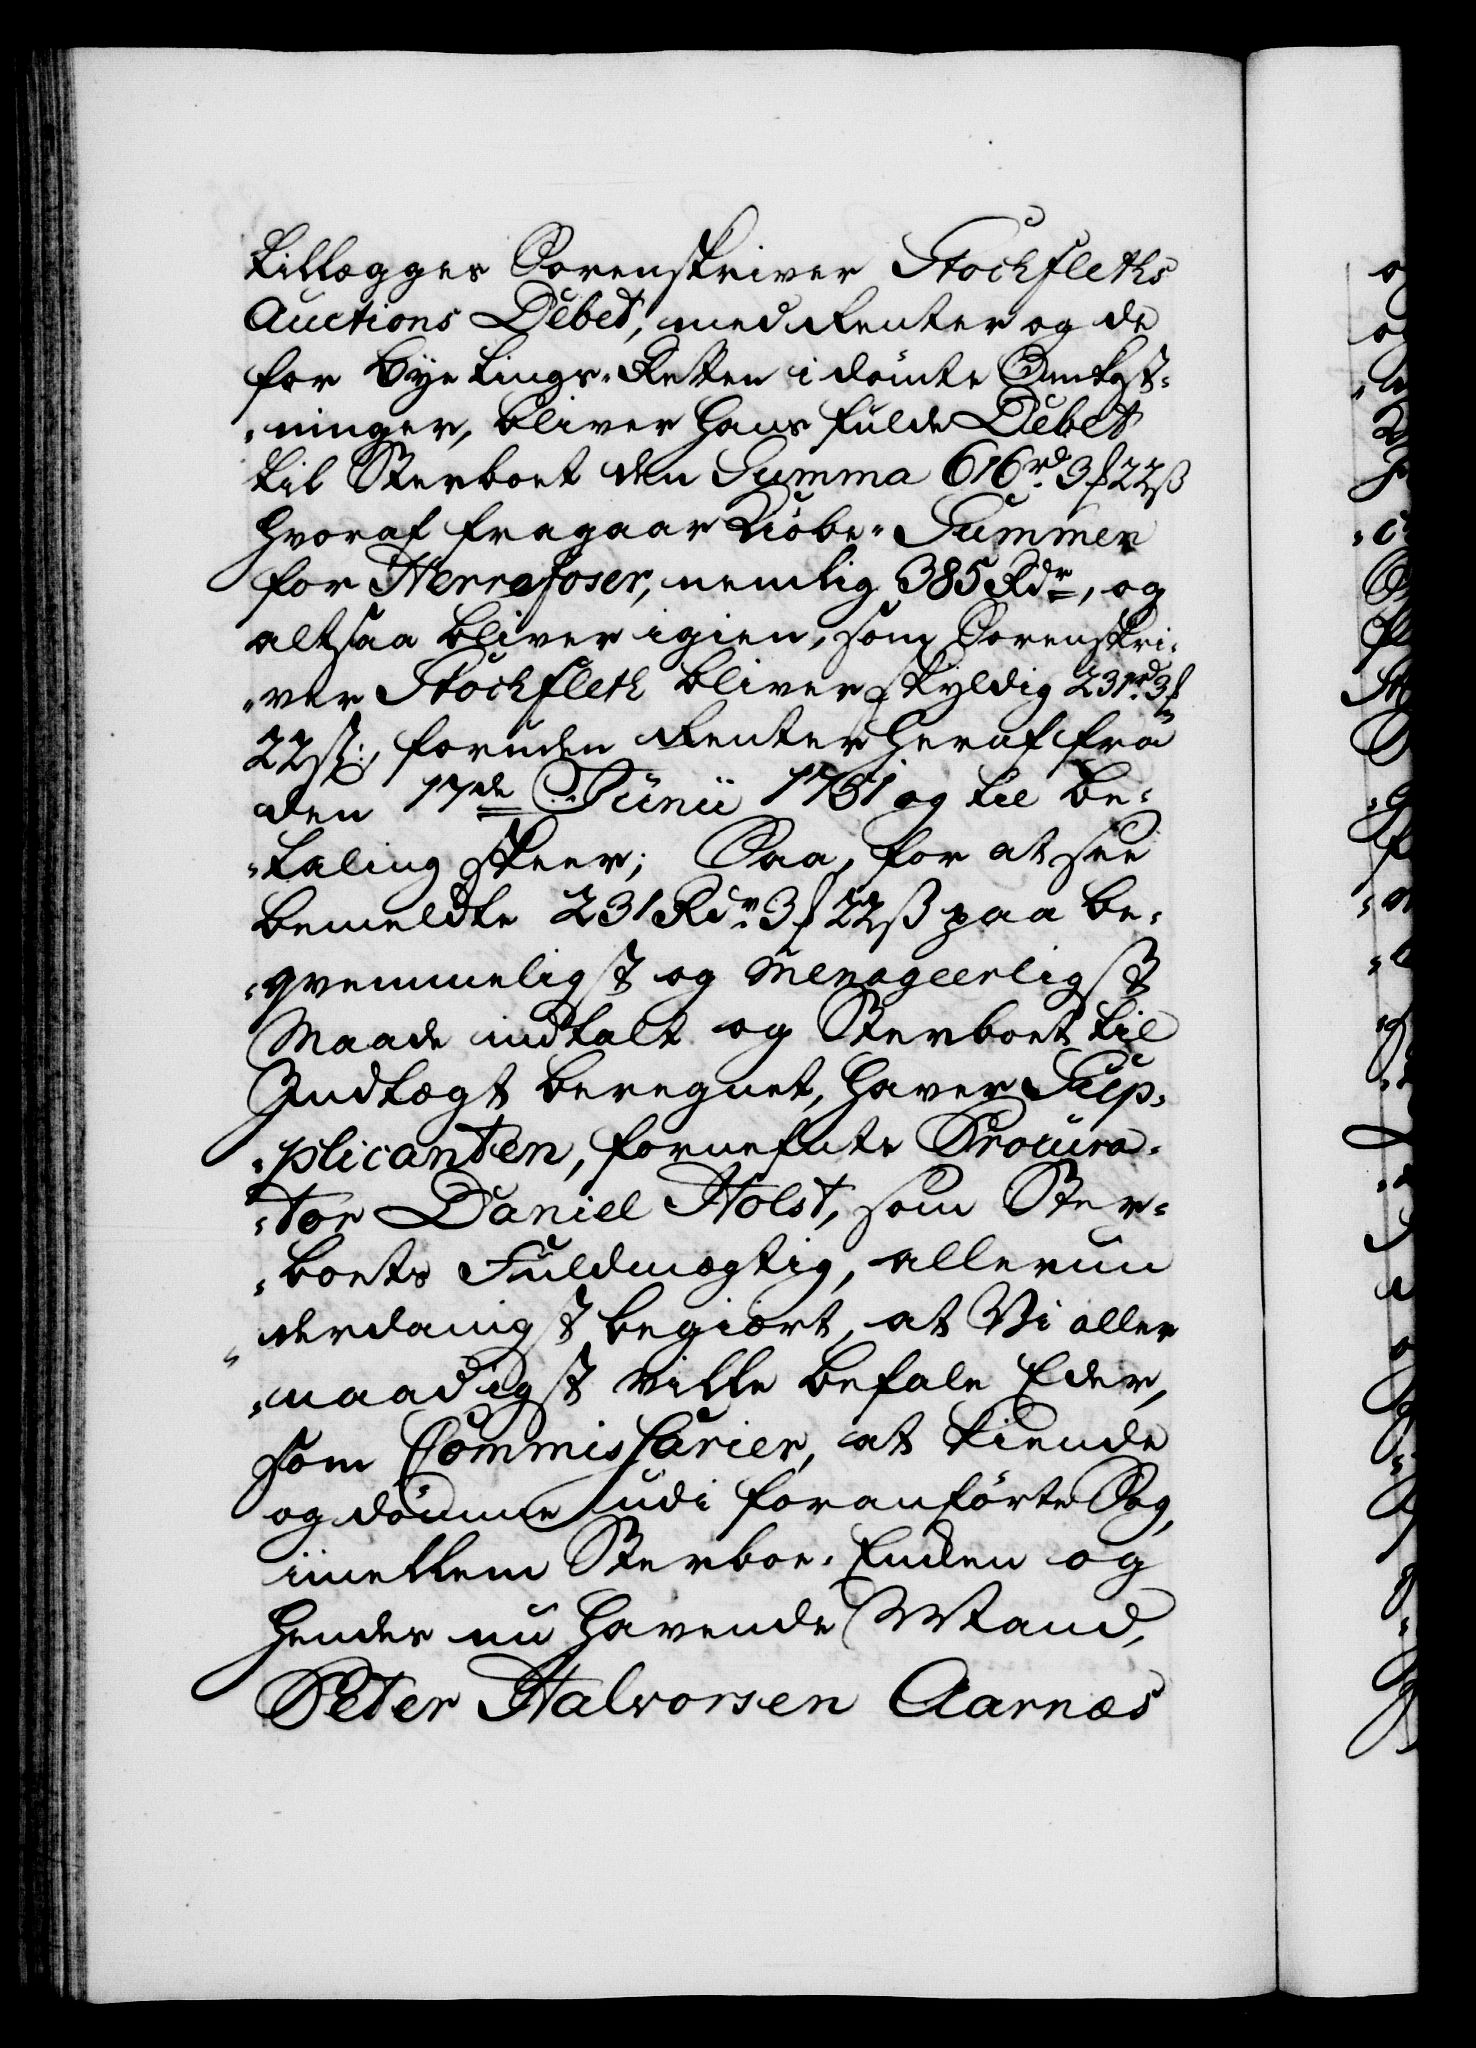 tillegges Sorenskriver Stochfleths
Auctions Debet, med Renter og de
for Bye tings-Retten i dömte Omkost-
-ninger, bliver hans fulde Debet
til Sterboet den Summa 616rd 3 ƒ 22ß
hvoraf fragaar Kiöbe-Summen
for Herrefoser, nemlig 385 Rdr, og
altsaa bliver igien, som Sorenskri-
-ver Stochfleth bliver skyldig 231rd 3 ƒ
22ß:, foruden Renter heraf fra
den 17de Junii 1761 og til Be-
-taling skeer; Saa, for at see
bemeldte 231 Rdr 3 ƒ 22ß paa be-
-qvemmeligst og Menageerligst
Maade indtalt og Sterboet til
Indtægt beregnet, haver Sup-
-plicanten, fornefnte Procura-
-tor Daniel Holst, som Ster-
-boets Fuldmægtig, allerun
-derdanigst begiært, at Vi aller
-naadigst ville befale Eder,
som Commissarier, at kiende
og dömme udi foranförte Sag,
imellem Sterboe-Enken og
hendes nu havende Mand,
Peter Halvorsen Aarnæs